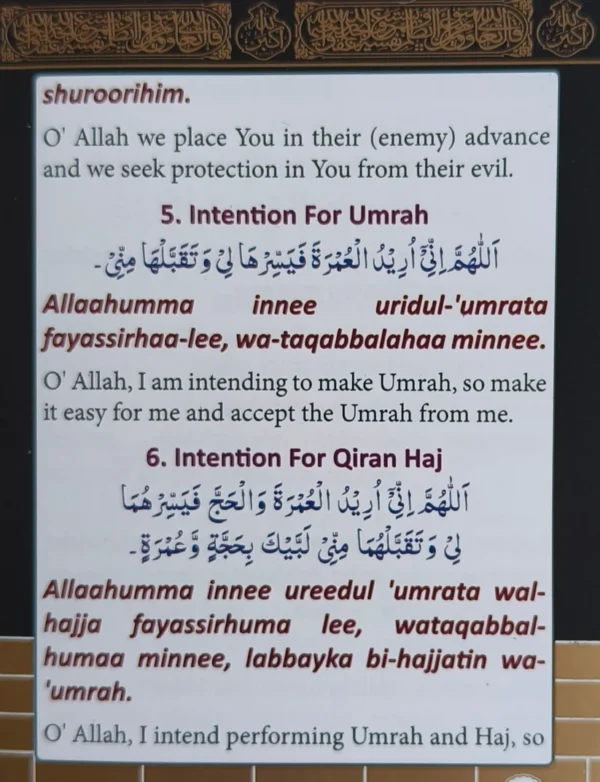 shuroorihim.
O' Allah we place You in their (enemy) advance
and we seek protection in You from their evil.
5. Intention For Umrah
اَللّٰهُمَّ اِنِّیْٓ اُرِیْدُ الْعُمْرَةَ فَیَسِّرْهَا لِیْ وَ تَقَبَّلْهَا مِنِّیْ۔
Allaahumma innee uridul-'umrata
fayassirhaa-lee, wa-taqabbalahaa minnee.
O' Allah, I am intending to make Umrah, so make
it easy for me and accept the Umrah from me.
6. Intention For Qiran Haj
اَللّٰهُمَّ اِنِّیْٓ اُرِیْدُ الْعُمْرَةَ وَالْحَجَّ فَیَسِّرْهُمَا
لِیْ وَ تَقَبَّلْهُمَا مِنِّیْ لَبَّیْكَ بِحَجَّةٍ وَّعُمْرَةٍ۔
Allaahumma innee ureedul 'umrata wal-
hajja fayassirhuma lee, wataqabbal-
humaa minnee, labbayka bi-hajjatin wa-
'umrah.
O' Allah, I intend performing Umrah and Haj, so